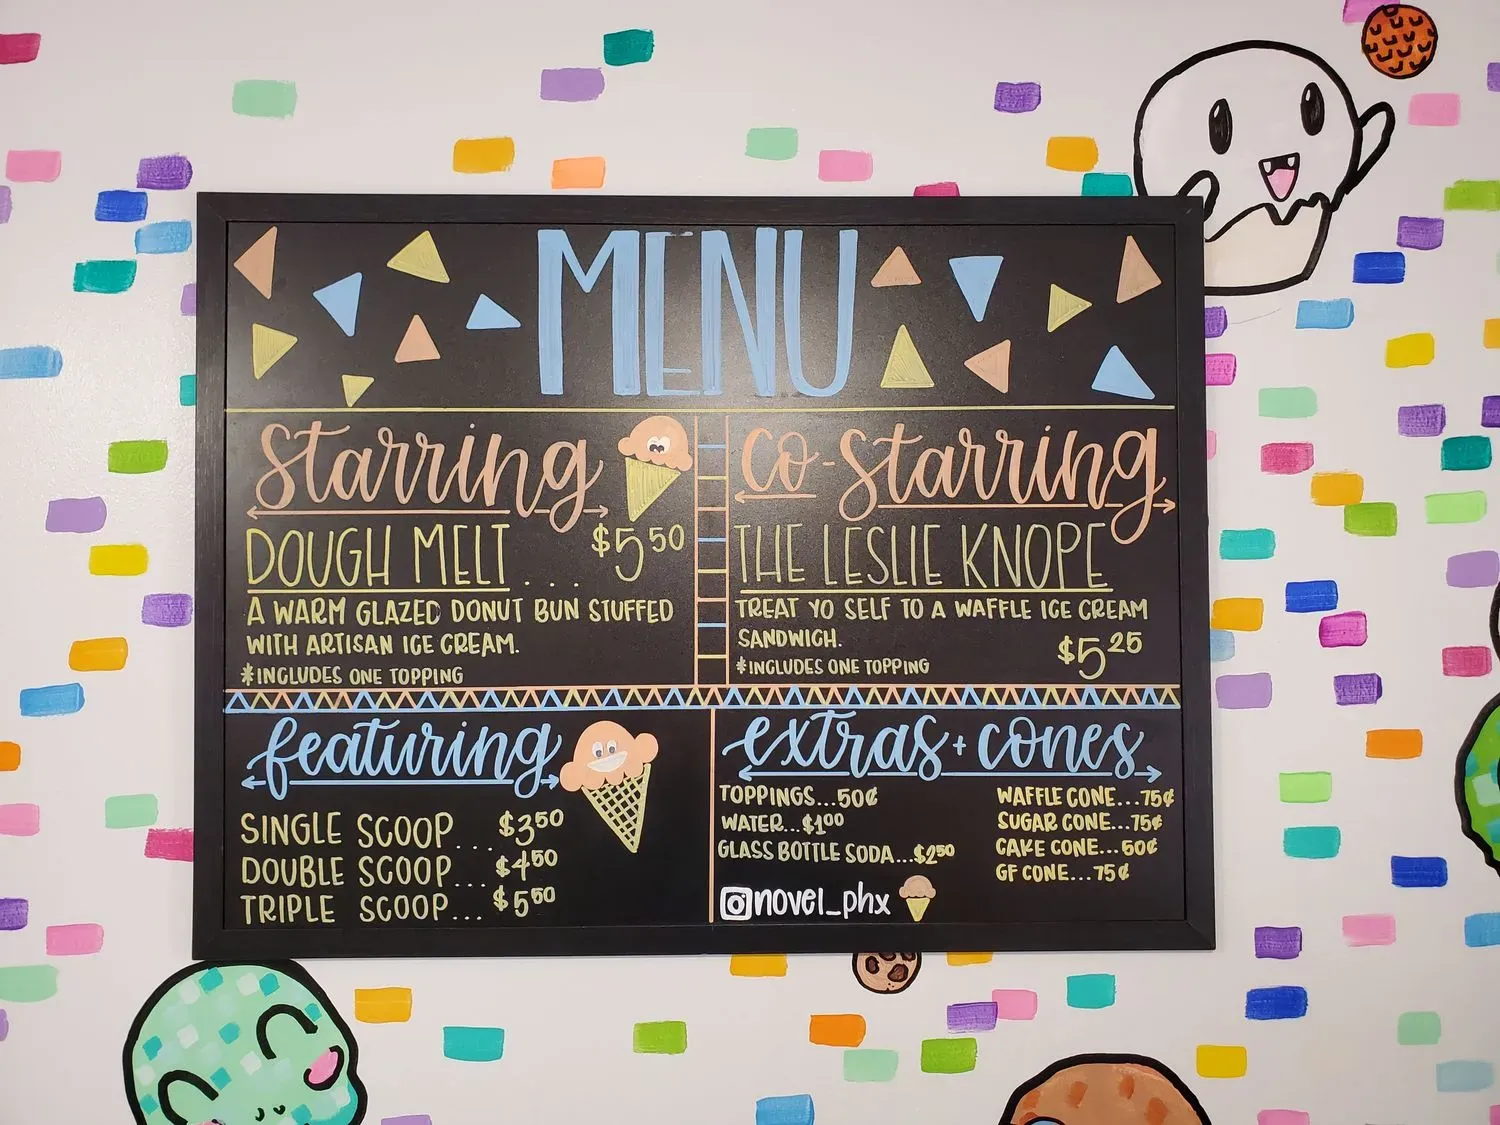 MENU
starring
DOUGH MELT... $5.50
A WARM GLAZED DONUT BUN STUFFED
WITH ARTISAN ICE CREAM.
*INCLUDES ONE TOPPING
co-starring
THE LESLIE KNOPE
TREAT YO SELF TO A WAFFLE ICE CREAM
SANDWICH.
$5.25
*INCLUDES ONE TOPPING
featuring
SINGLE SCOOP... $3.50
DOUBLE SCOOP... $4.50
TRIPLE SCOOP... $5.50
extras + cones
TOPPINGS...50¢
WATER...$1.00
GLASS BOTTLE SODA...$2.50
WAFFLE CONE...75¢
SUGAR CONE...75¢
CAKE CONE...50¢
GF CONE...75¢
novel_phx